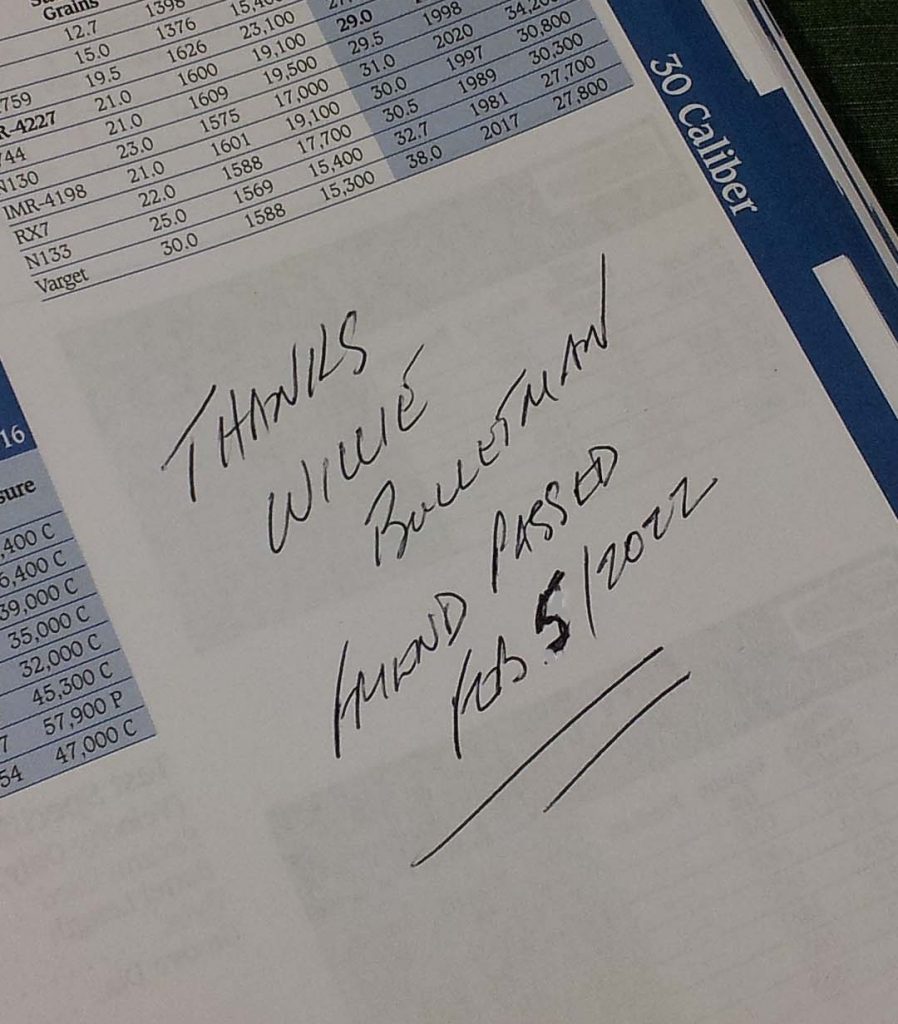 Grains
12.7 1398
15.0 1376
759 19.5 1626 23,100
R-4227 21.0 1600 19,100 29.0
744 21.0 1609 19,500 29.5 1998
N130 23.0 1575 17,000 31.0 2020 34,200
IMR-4198 21.0 1601 19,100 30.0 1997 30,800
RX7 22.0 1588 17,700 30.5 1989 30,300
N133 25.0 1569 15,400 32.7 1981 27,700
Varget 30.0 1588 15,300 38.0 2017 27,800
30 Caliber
THANKS
WILLIE
BULLETMAN
FRIEND PASSED
FEB. 5/2022
16
sure
,400 C
6,400 C
39,000 C
35,000 C
32,000 C
45,300 C
7 57,900 P
54 47,000 C